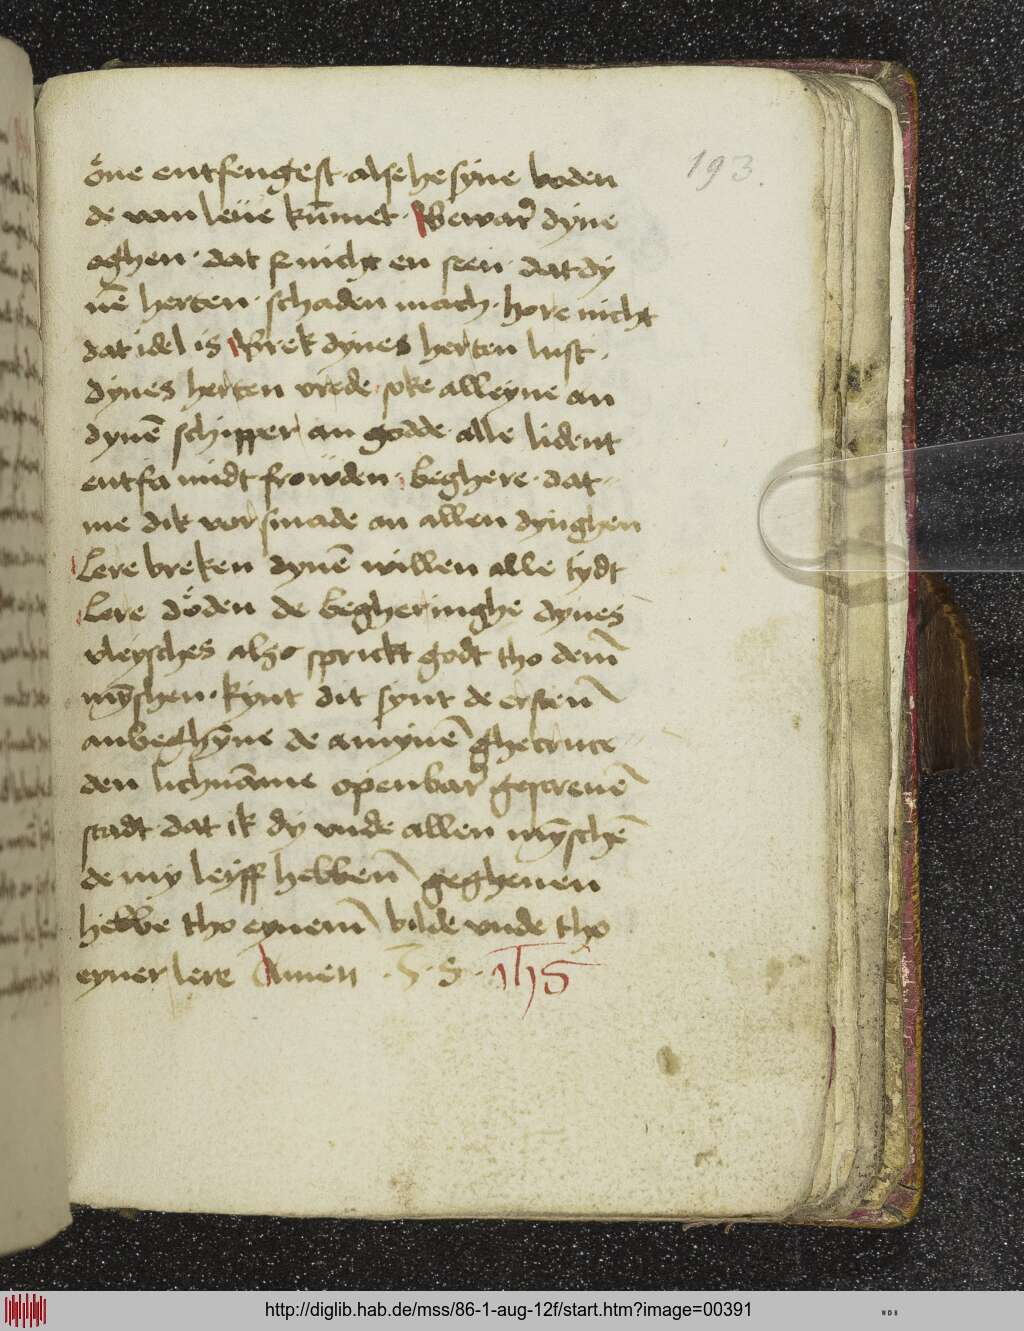 193.
öne entfengest · alse he syne boden
de van leue kūmet · Bewar dyne
oghen · dat se nicht en seen · dat dy
nē herten · schaden mach · hore nicht
dat idel is Brek dynes herten lust ·
dynes herten vrede · soke alleyne an
dynē schipper an godde alle lident
entfa midt frowden · beghere · dat
me dik vorsmade an allen dynghen
Lere breken dynē willen alle tydt
Lere döden de begheringhe dynes
vleysches also sprickt godt tho dem
mȳschen · kynt dit synt de ersten
anbeghȳne de amynē ghecruce
den lichnāme openbar gescreuē
stadt · dat ik dy vnde allen mȳschē
de my leyff hebben gegheuen
hebbe tho eynem bilde vnde tho
eyner lere Amen · S · S · ihs
http://diglib.hab.de/mss/86-1-aug-12f/start.htm?image=00391